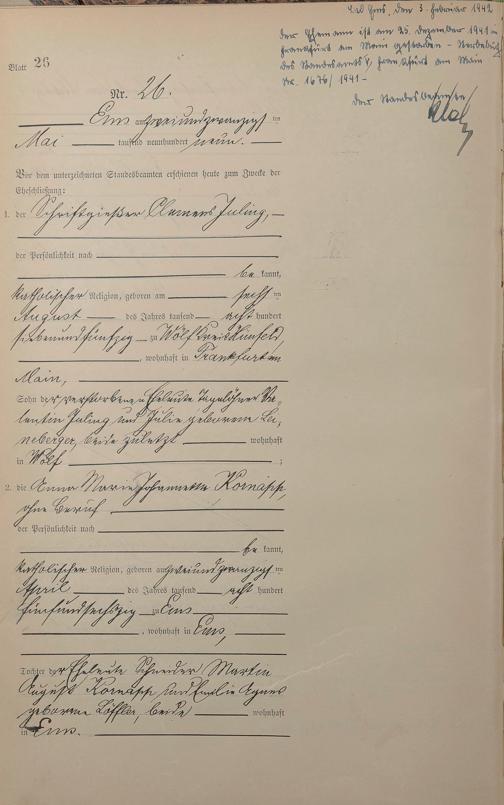 Bad Ems, den 3. Februar 1942
Der Ehemann ist am 25. Dezember 1941 in
Frankfurt am Main gestorben - Sterbebuch
des Standesamts V, Frankfurt am Main
Nr. 1676/1941 -
Der Standesbeamte
Blatt 26
Nr. 26.
Ems am zweiundzwanzigsten
Mai tausend neunhundert neun.
Vor dem unterzeichneten Standesbeamten erschienen heute zum Zwecke der
Eheschließung:
1. der Schriftgießer Clemens Juling,
der Persönlichkeit nach
be kannt,
katholischer Religion, geboren am sechsten
August des Jahres tausend acht hundert
siebenundfünfzig zu Wölf Kreis Hünfeld,
, wohnhaft in Frankfurt am
Main,
Sohn der verstorbenen Eheleute Tagelöhner Va-
lentin Juling und Julie geborene Lei-
neberger, beide zuletzt wohnhaft
in Wölf ;
2. die Anna Maria Johannette Kornäpp,
ohne Beruf
der Persönlichkeit nach
be kannt,
katholischer Religion, geboren am zweiundzwanzigsten
April des Jahres tausend acht hundert
fünfundsechszig zu Ems
, wohnhaft in Ems,
Tochter der Eheleute Schneider Martin
August Kornäpp und Emilie Agnes
geborene Löffler, beide wohnhaft
in Ems.